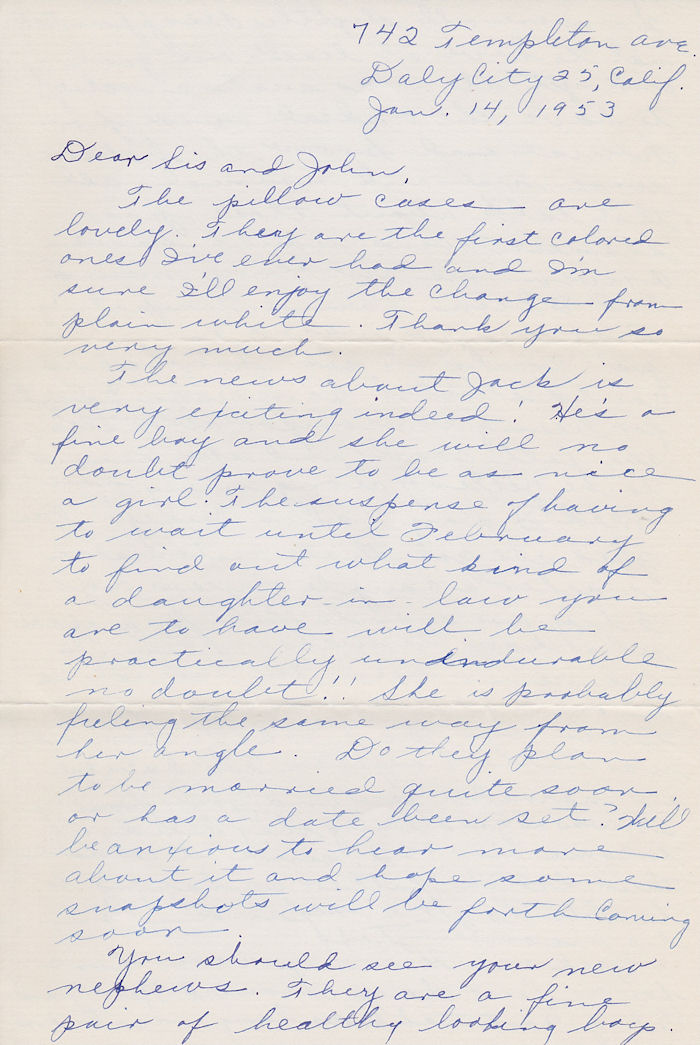 742 Templeton ave.
Daly City 25, Calif.
Jan. 14, 1953
Dear Sis and John,
The pillow cases are
lovely. They are the first colored
ones I've ever had and I'm
sure I'll enjoy the change from
plain white. Thank you so
very much.
The news about Jack is
very exciting indeed! He's a
fine boy and she will no
doubt prove to be as nice
a girl. The suspense of having
to wait until February
to find out what kind of
a daughter-in-law you
are to have will be
practically unindurable
no doubt!! She is probably
feeling the same way from
her angle. Do they plan
to be married quite soon
or has a date been set? Will
be anxious to hear more
about it and hope some
snapshots will be forth coming
soon.
You should see your new
nephews. They are a fine
pair of healthy looking boys.